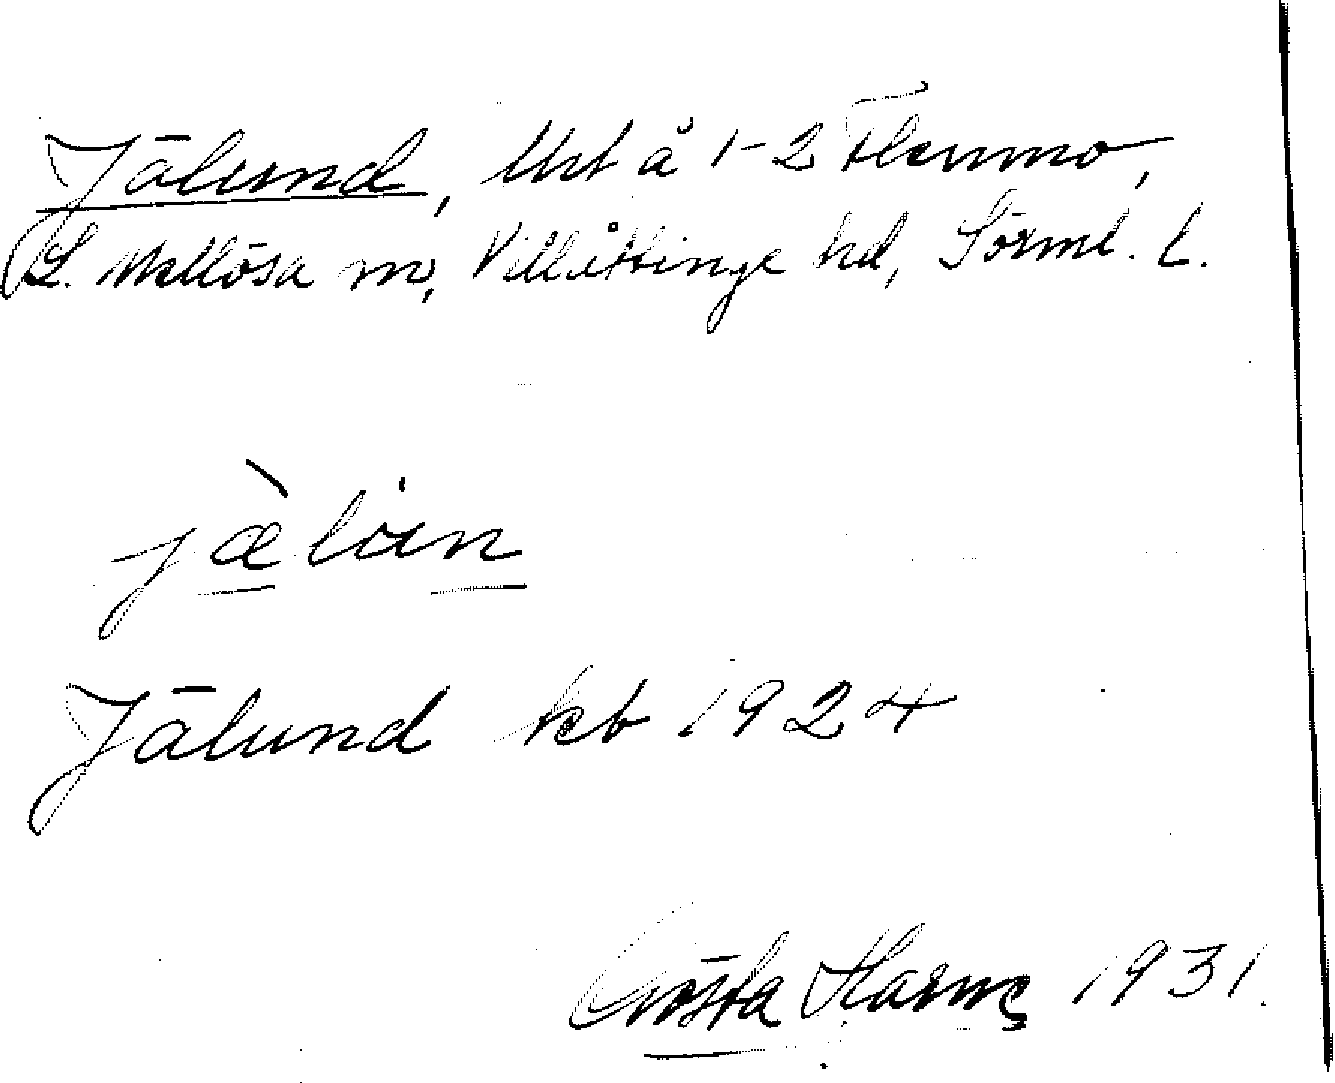 Jälund, Utt å 1-2 Flenmo,
L. Mellösa sn, Villåttinge hd, Sörml. l.
jæ̀lu̇n
Jälund kb 1924
Gösta Harns 1931.